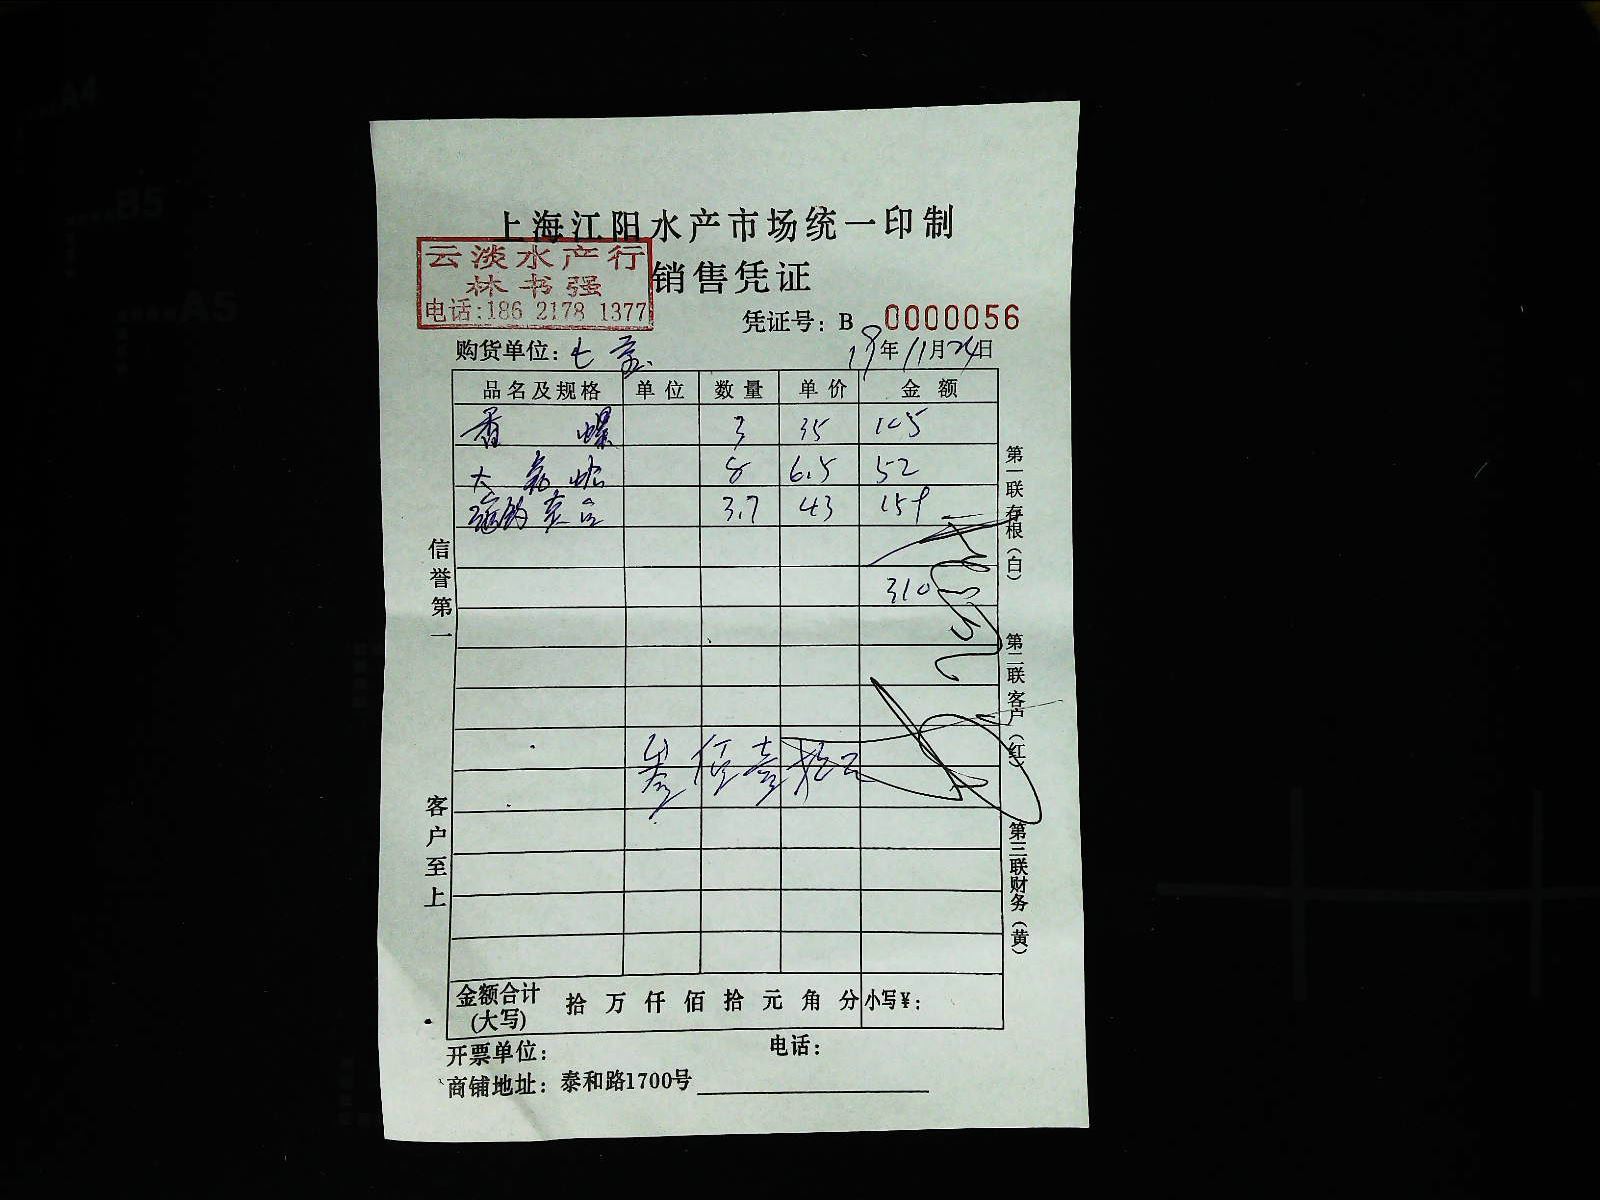 上海江阳水产市场统一印制
云淡水产行
林书强
电话:186 2178 1377
销售凭证
凭证号: B 0000056
购货单位: 七宝
19年11月24日
品名及规格 单位 数量 单价 金额
香螺 3 35 105
大 蛤 8 6.5 52
3.7 43 159
310
叁佰壹拾元
信誉第一
客户至上
第一联存根(白)
第二联客户(红)
第三联财务(黄)
金额合计(大写) 拾 万 仟 佰 拾 元 角 分 小写¥:
开票单位: 电话:
商铺地址: 泰和路1700号